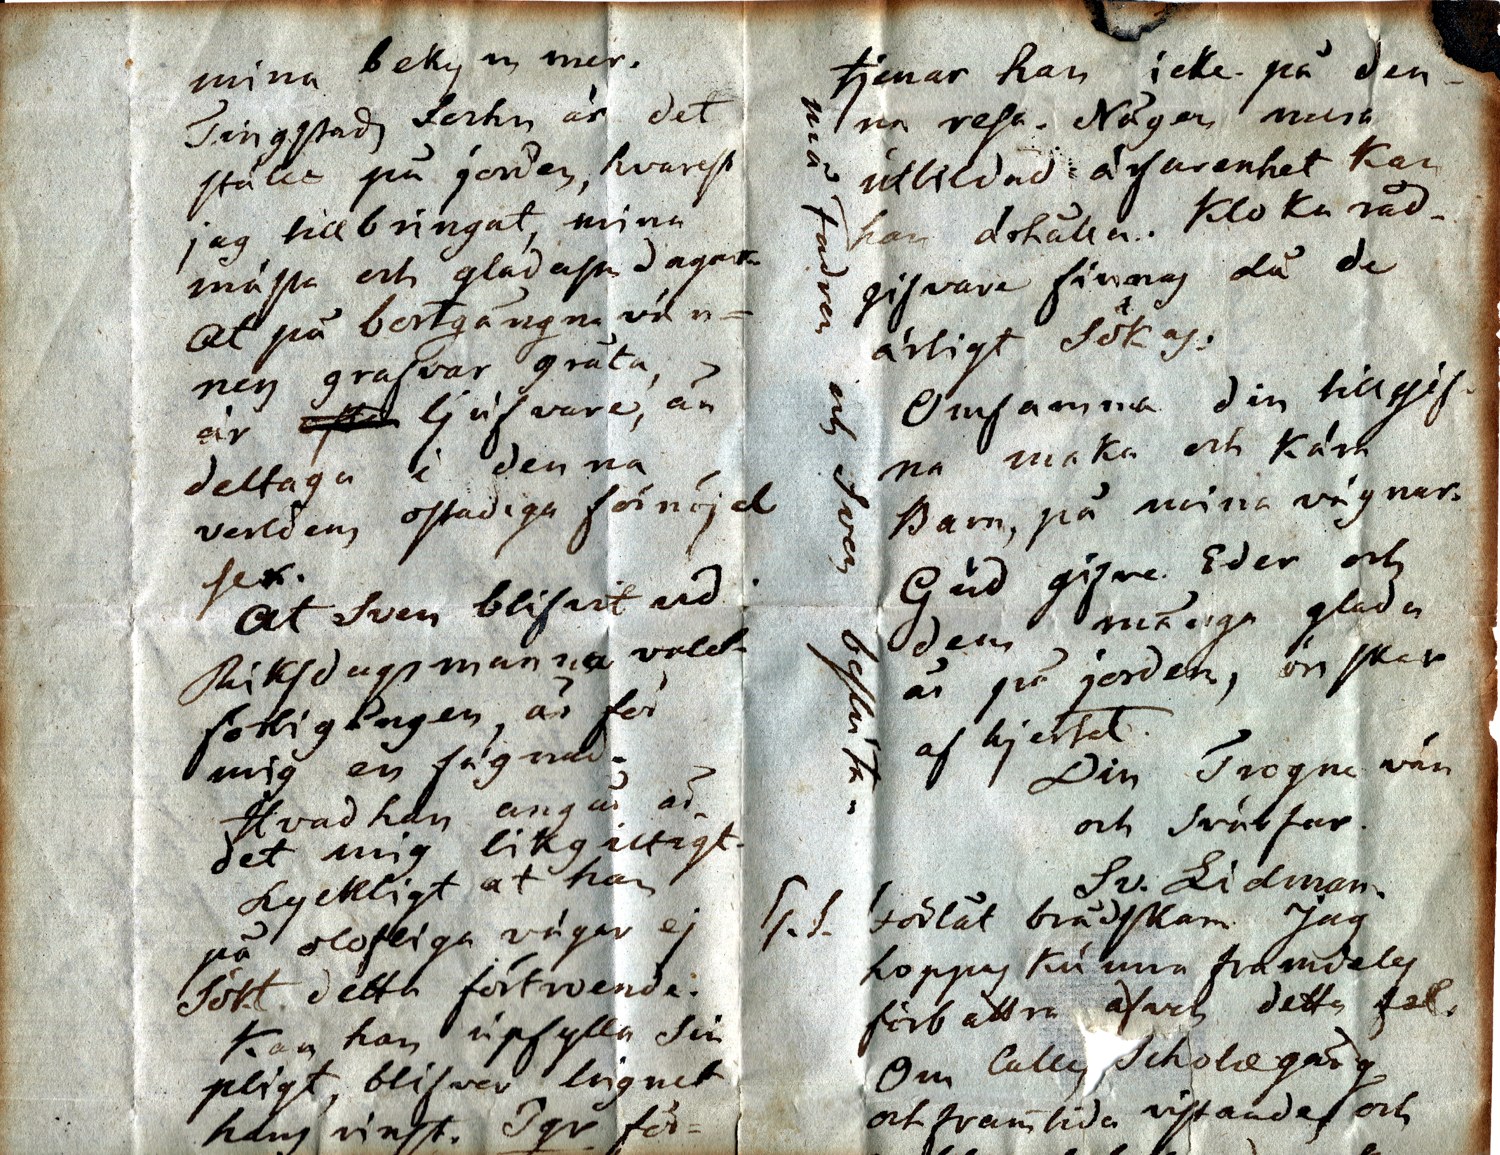 mina bekymmer.
Tingstads Sochn är det
ställe på jorden, hvarest
jag tillbringat, mina
mästa och gladaste dagar
at på bortgångna vän=
ners grafvar gråta,
är ljufvare, än
deltaga i denna
verldens ostadiga förnöjel
ser.
At Sven blifvit vid
Riksdagsmanna valet
förbigången, är för
mig en fägnad.
Hvad han angår är
det mig likgiltigt.
Lyckligt at han
på olofliga vägar ej
sökt detta förtroende.
Kan han upfylla Sin
pligt, blifver lugnet
hans vinst. för=
tjenar han icke på den-
na resa. Någon mera
utbildad ärfarenhet kan
han erhålla. Kloka råd-
gifvare finnas då de
ärligt Sökas.
Omfamna din tillgif-
na maka och kära
Barn, på mina vägnar.
Gud gifve Eder och
dem många glada
år på jorden, önskar
af hjertat.
Din Trogne vän
och Svärfar.
Sv. Lidman.
P.S. Förlåt brådskan. Jag
hoppas kunna framdeles
förbättra äfven detta fel.
Om Calles Scholægång
och framtida vistande, och
må Fadren och Sven besluta.